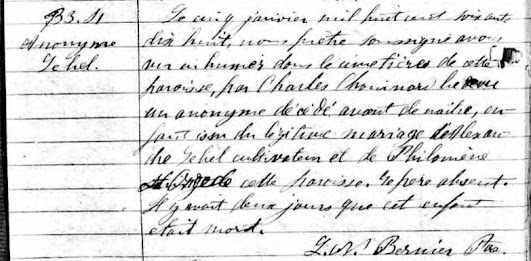 B3. S
Anonyme
Gehel.
Le cinq janvier mil huit cent soixante
dix huit, nous prêtre soussigné avons
vu inhumer dans le cimetière de cette
paroisse, par Charles Chouinard bedeau
un anonyme décédé avant de naître, en-
fant issu du légitime mariage d'Alexan-
dre Gehel cultivateur et de Philomène
de cette paroisse. Le père absent.
Il y avait deux jours que cet enfant
était mort.
L. N. Bernier Ptre.